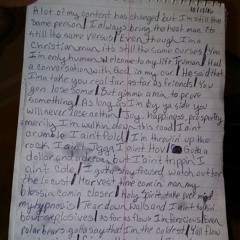 A lot of my content has changed but I'm still the
same person / I always bring the heat man, its
still the same verses / Even though I'm a
Christian man, its still the same curses / You
I'm only human, Welcome to my life Truman / Had
a conversation with God, in my car / He said that
I'ma take you real far as far as friends / You
gon lose some / But gimme a reason to prove
something / As long as I'm by ya side you
will never lose nothin / Joy, happiness, prosperity
mercy I'm walkin down this road / I aint
crumble I aint fold / I'm throwin up the
rock / I aint Jigga I aint Hov / Got a
dollar and a dream but I ain't trippin I
aint Cole / I gotta stay focused watch out for
the locust / Harvest time comin man, my
blessins comin closer / Holy Spirit take over
my hypnosis / Tear down walls and I ain't talkin
bout explosives / as far as flow I'm ferocious / Even
polar bears gotta say that I'm the coldest / Yall flow